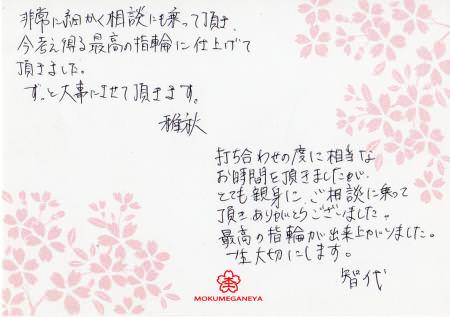 非常に細かく相談にも乗って頂き、
今考え得る最高の指輪に仕上げて
頂きました。
ずっと大事にさせて頂きます。
雅秋
打ち合わせの度に相当な
お時間を頂きましたが、
とても親身に、ご相談に乗って
頂きありがとうございました。
最高の指輪が出来上がいました。
一生大切にします。
智代
MOKUMEGANEYA